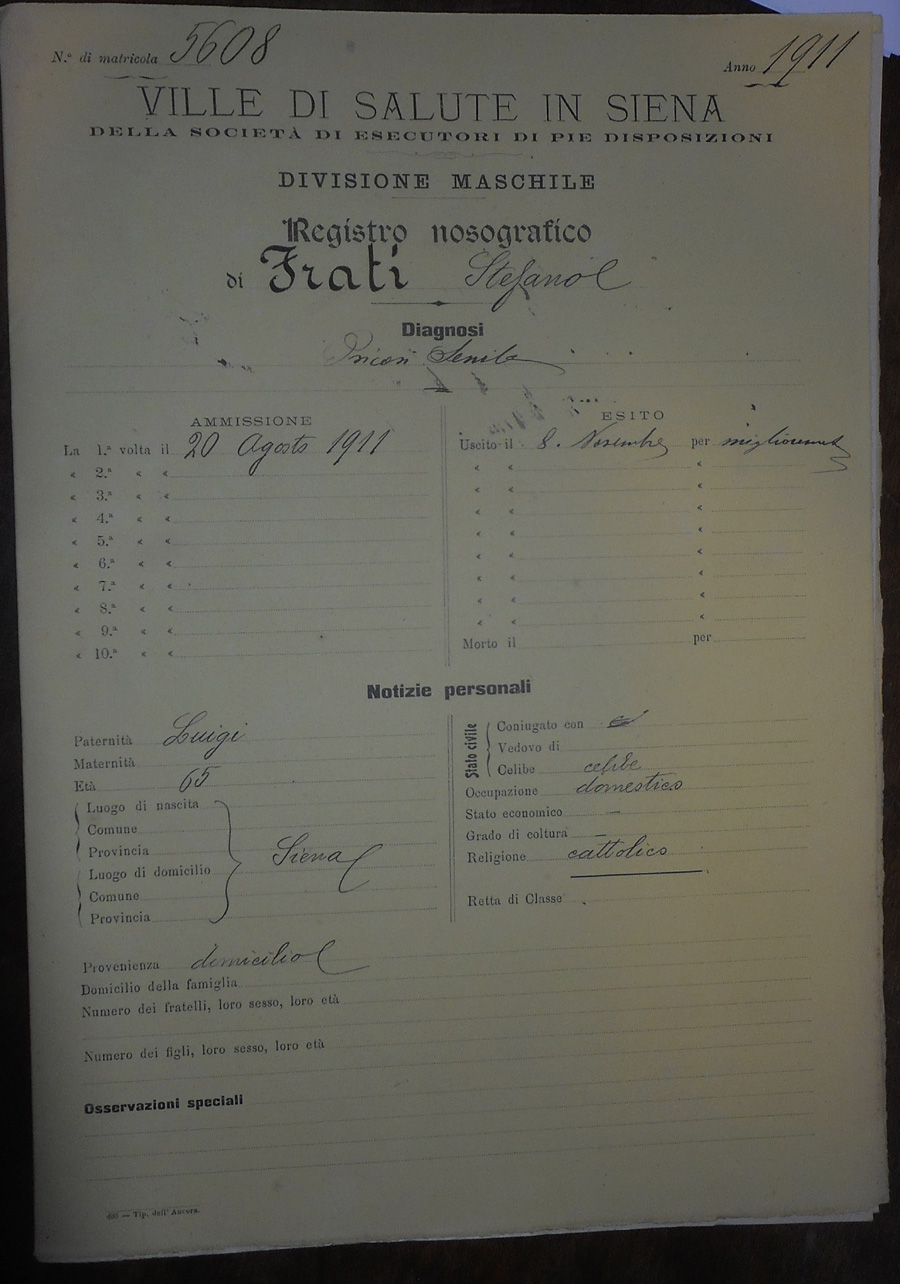 N.º di matricola 5608 Anno 1911
VILLE DI SALUTE IN SIENA
DELLA SOCIETÀ DI ESECUTORI DI PIE DISPOSIZIONI
DIVISIONE MASCHILE
Registro nosografico
di Frati Stefano
Diagnosi
Psicosi Senile
AMMISSIONE
La 1.ª volta il 20 Agosto 1911
« 2.ª « «
« 3.ª « «
« 4.ª « «
« 5.ª « «
« 6.ª « «
« 7.ª « «
« 8.ª « «
« 9.ª « «
« 10.ª « «
ESITO
Uscito il 8. Novembre per miglioramento
« « «
« « «
« « «
« « «
« « «
« « «
« « «
« « «
Morto il per
Notizie personali
Paternità Luigi
Maternità
Età 65
Luogo di nascita
Comune
Provincia
Siena
Luogo di domicilio
Comune
Provincia
Stato civile
Coniugato con
Vedovo di
Celibe celibe
Occupazione domestico
Stato economico —
Grado di coltura —
Religione cattolico
Retta di Classe
Provenienza domicilio
Domicilio della famiglia
Numero dei fratelli, loro sesso, loro età
Numero dei figli, loro sesso, loro età
Osservazioni speciali
— Tip. dell'Ancora.